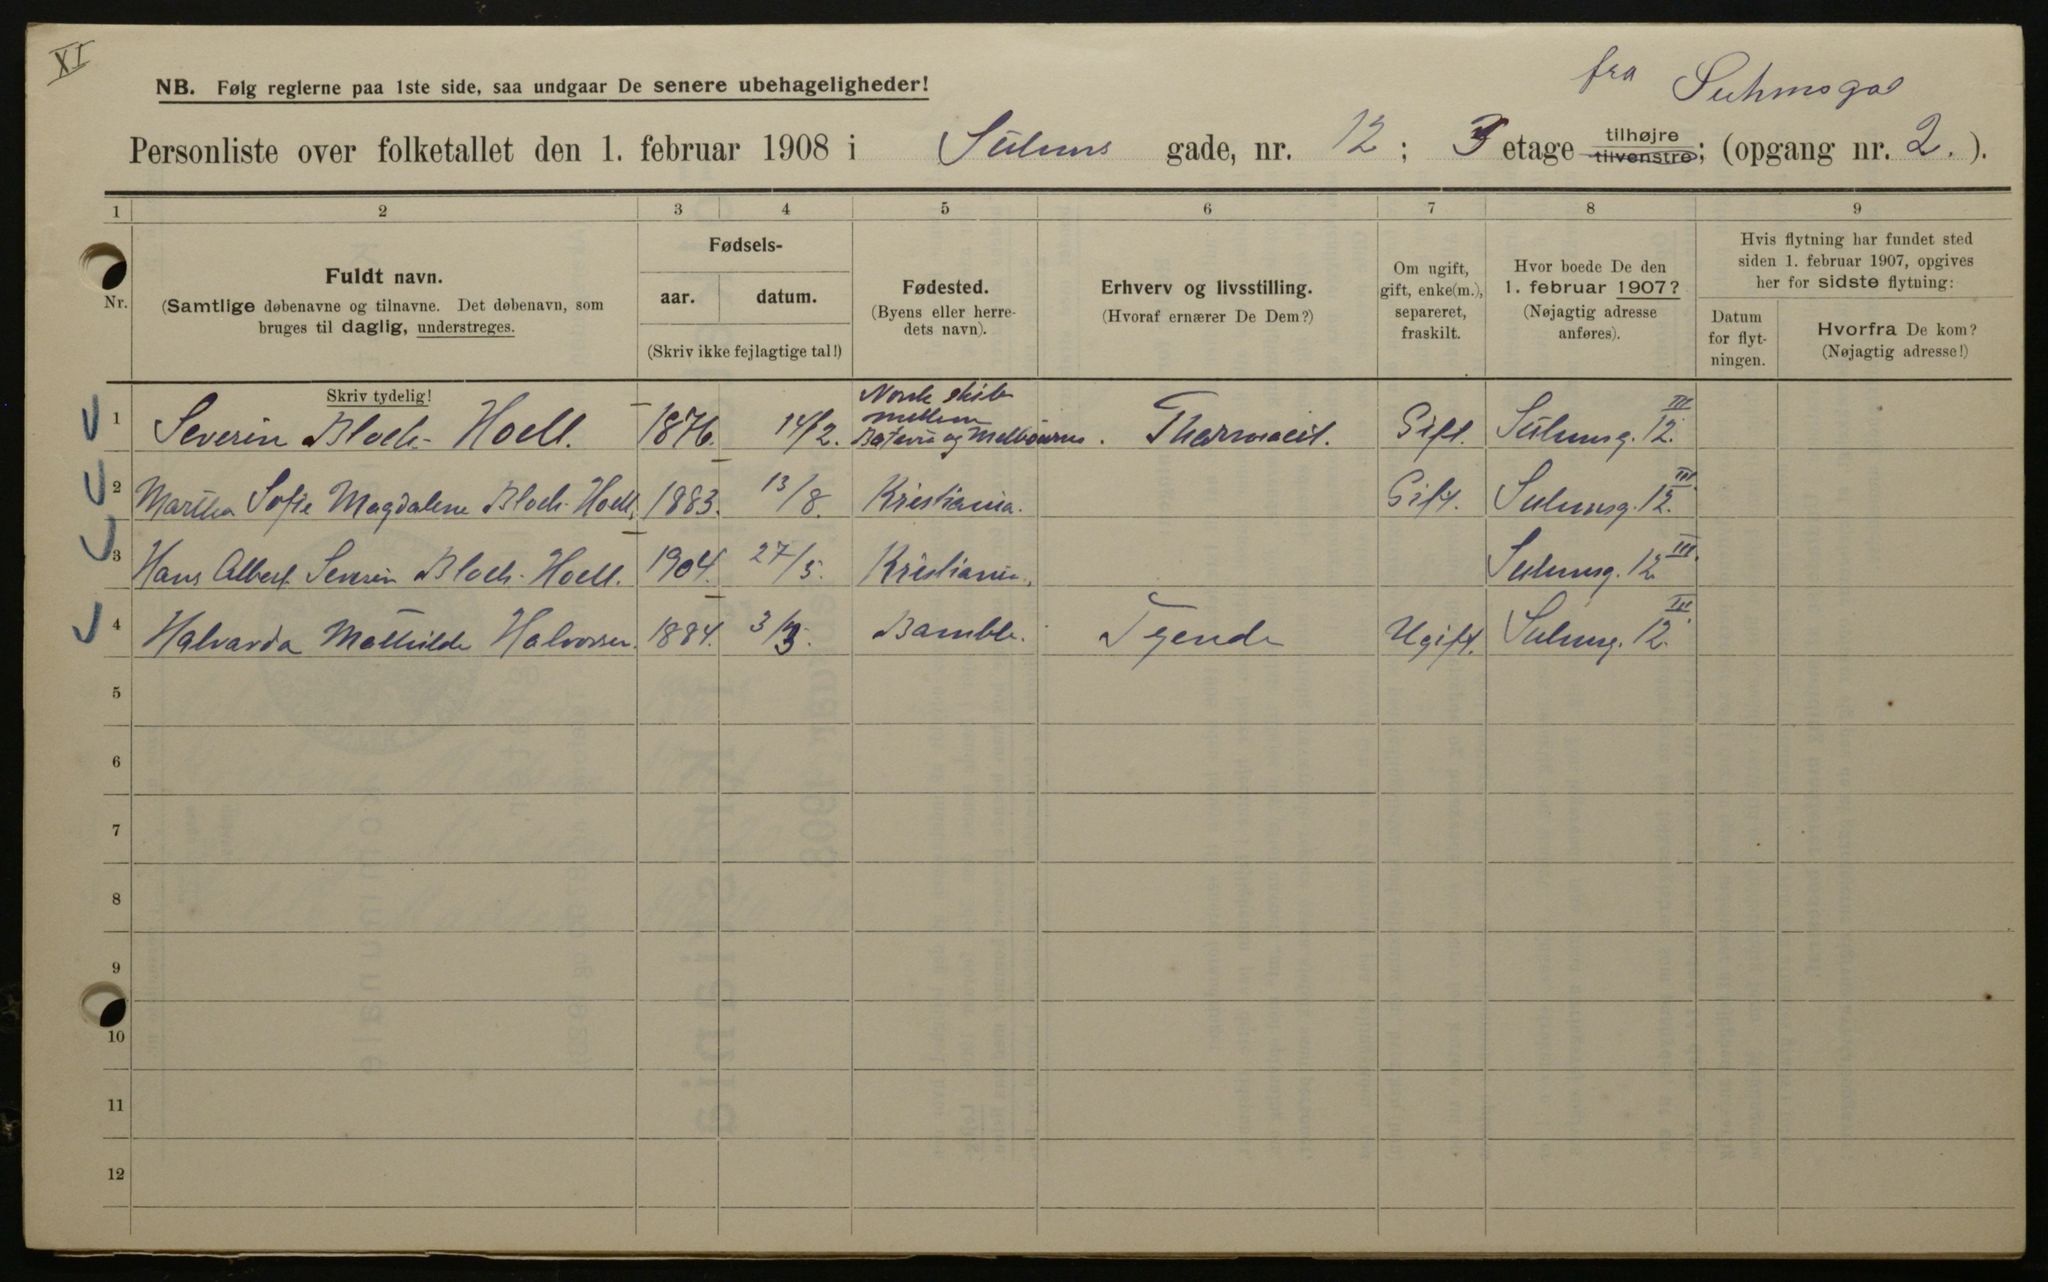 XI
fra Suhmsgad
NB. Følg reglerne paa 1ste side, saa undgaar De senere ubehageligheder!
Personliste over folketallet den 1. februar 1908 i Suhms gade, nr. 12; 3 etage tilhøjre tilvenstre; (opgang nr. 2.).
1 2 3 4 5 6 7 8 9
Nr.
Fuldt navn.
(Samtlige døbenavne og tilnavne. Det døbenavn, som
bruges til daglig, understreges.
Fødsels-
aar. datum.
(Skriv ikke fejlagtige tal!)
Fødested.
(Byens eller herre-
dets navn).
Erhverv og livsstilling.
(Hvoraf ernærer De Dem?)
Om ugift,
gift, enke(m.),
separeret,
fraskilt.
Hvor boede De den
1. februar 1907?
(Nøjagtig adresse
anføres).
Hvis flytning har fundet sted
siden 1. februar 1907, opgives
her for sidste flytning:
Datum
for flyt-
ningen.
Hvorfra De kom?
(Nøjagtig adresse!)
Skriv tydelig!
1 Severin Bloch-Hoell. 1876. 14/2. Norsk skib mellem Batavia og Melbourne. Pharmaceit. Gift. Suhmsg. 12 III.
2 Martha Sofie Magdalene Bloch-Hoell. 1883. 13/8. Kristiania. Gift. Suhmsg. 12 III.
3 Hans Albert Severin Bloch-Hoell. 1904. 27/5. Kristiania. Suhmsg. 12 III.
4 Halvarda Mathilde Halvorsen. 1884. 3/3. Bamble. Tyende Ugift. Suhmsg. 12 III.
5
6
7
8
9
10
11
12